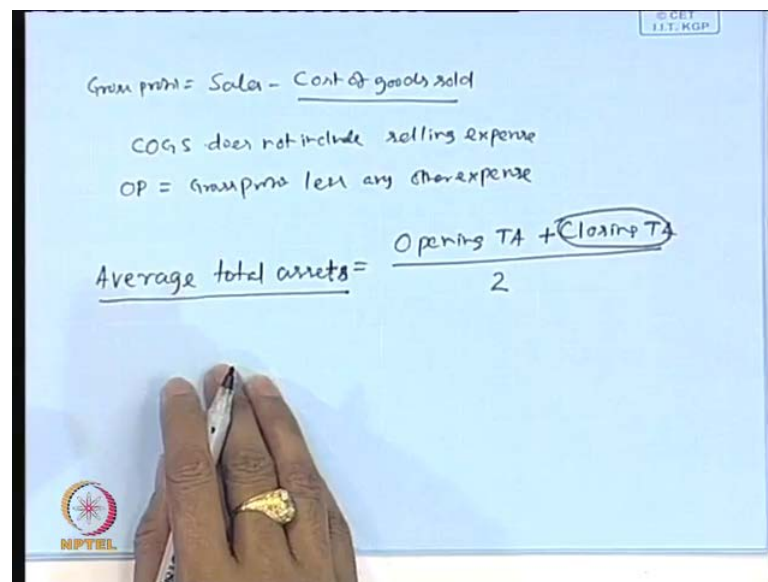 © CET
I.I.T. KGP
Gross profit = Sales - Cost of goods sold
COGS does not include selling expense
OP = Gross profit less any other expense
Average total assets = Opening TA + Closing TA
2
NPTEL